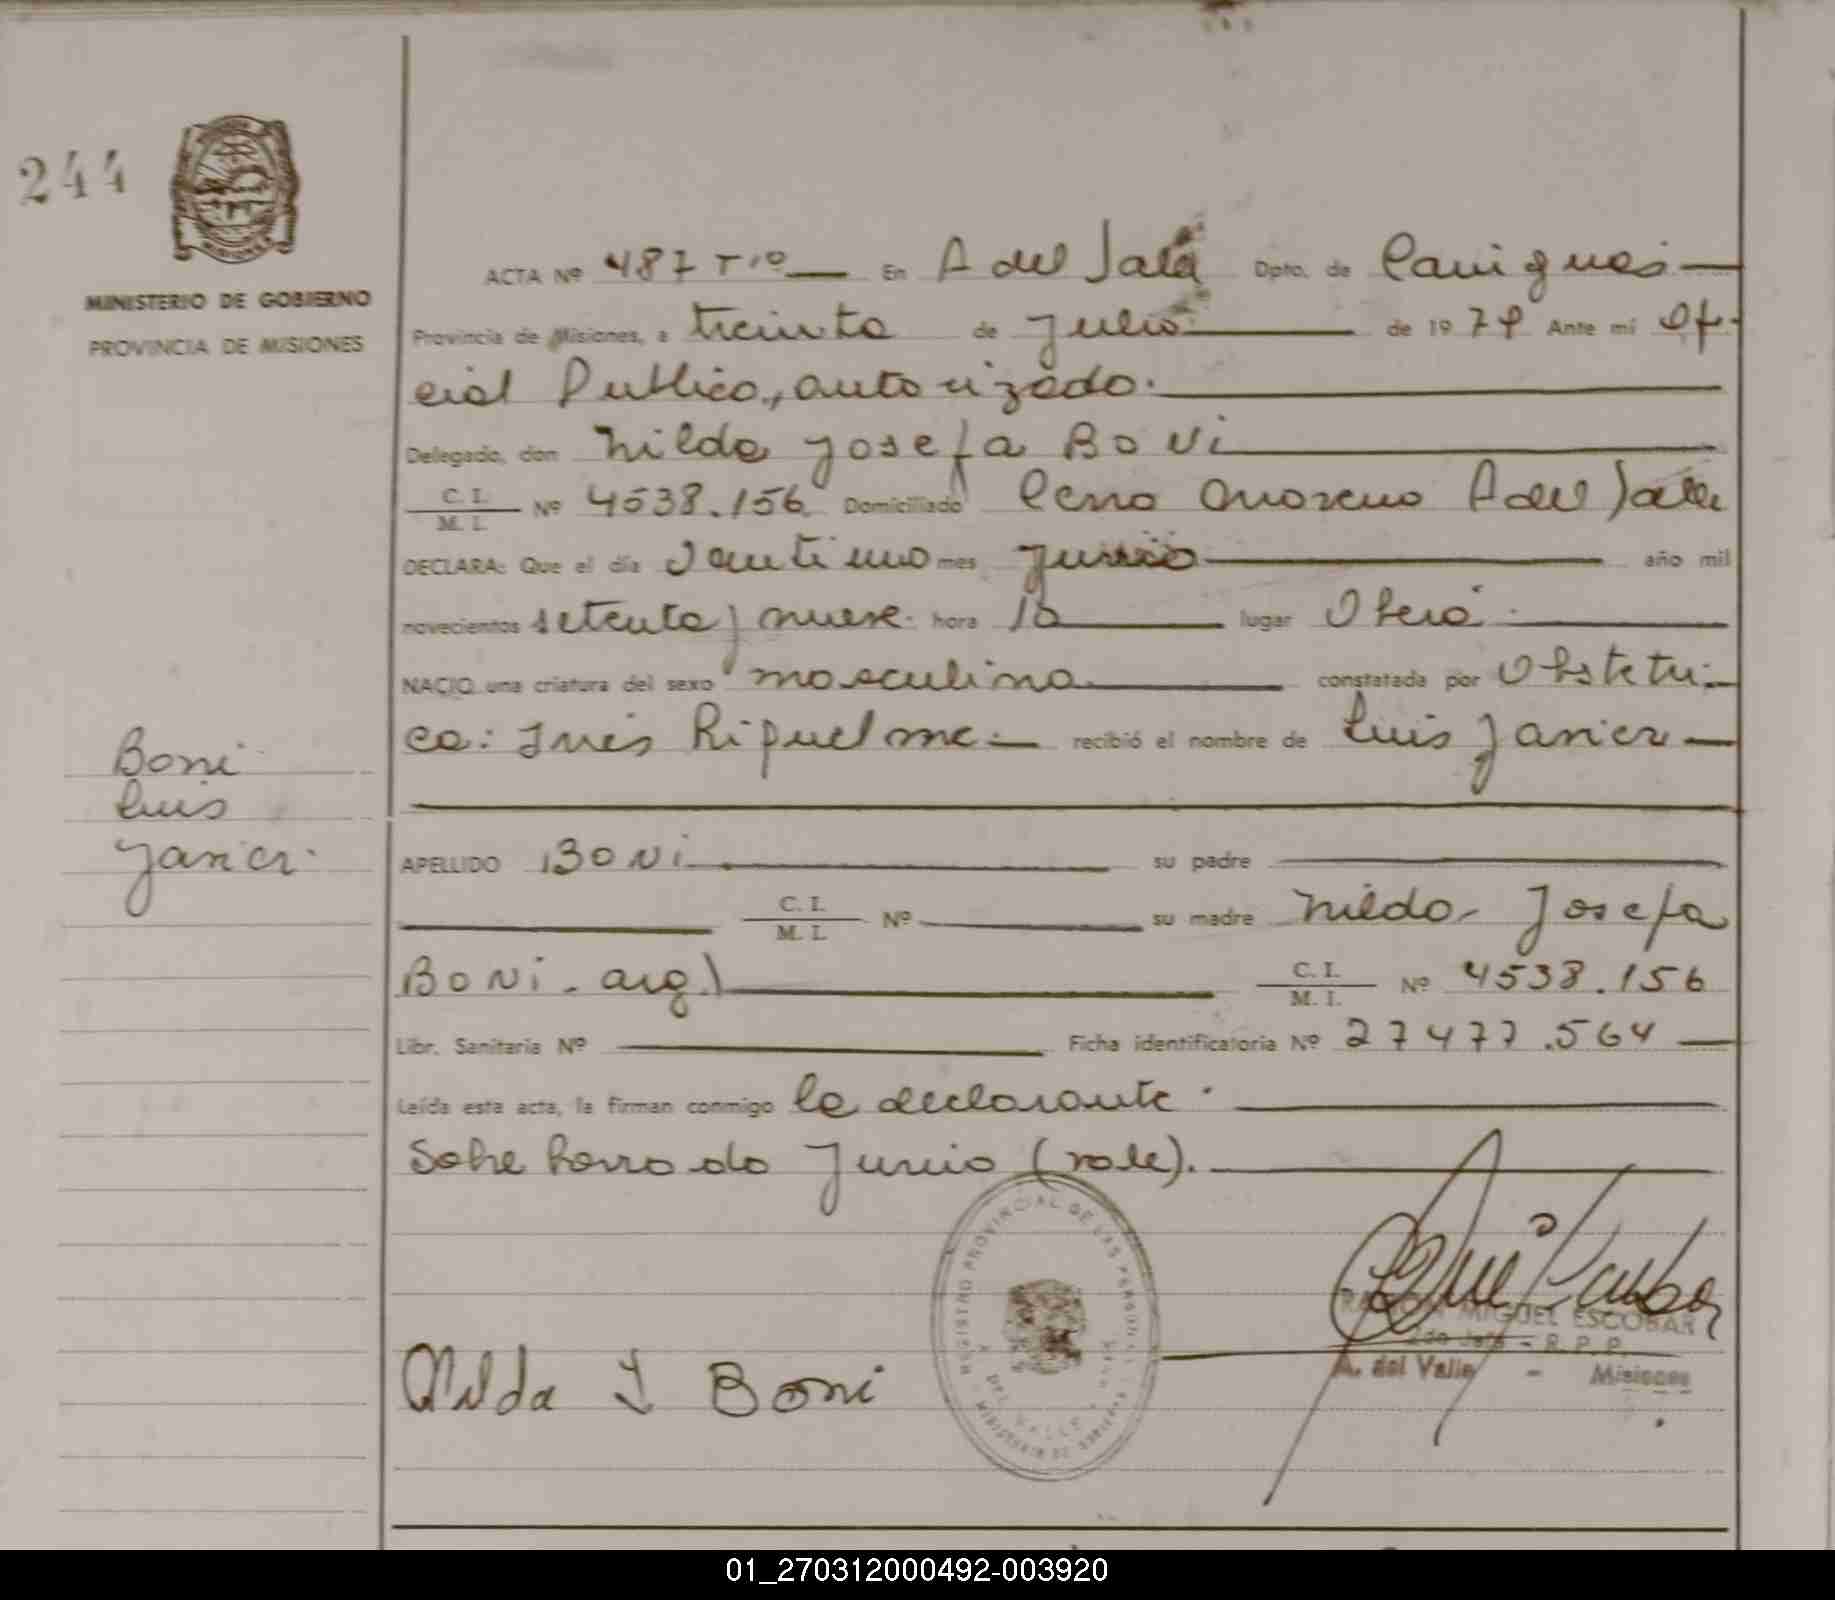 244
MINISTERIO DE GOBIERNO
PROVINCIA DE MISIONES
ACTA Nº 487 Tº En A del Valle Dpto. de Cainguas
Provincia de Misiones, a treinta de Julio de 1979 Ante mi Ofi-
cial Publico, autorizado.
Delegado, don Nilda Josefa BoNi
C. I.
M. I.
Nº 4538.156 Domiciliado Cerro Moreno A del Valle
DECLARA: Que el día mes Junio año mil
novecientos setenta y nueve hora 10 lugar Oberá
NACIO una criatura del sexo masculino constatada por Obstetri-
ca: Inés Riquelme recibió el nombre de Luis Javier
Boni
Luis
Javier
APELLIDO BoNi su padre
C. I.
M. I.
Nº su madre Nilda Josefa
BoNi. arg)
C. I.
M. I.
Nº 4538.156
Libr. Sanitaria Nº Ficha identificatoria Nº 27477.564
Leída esta acta, la firman conmigo la declarante.
Sobre borrado Junio (vale).
REGISTRO PROVINCIAL DE LAS PERSONAS
A. DEL VALLE
Nilda J Boni
RAMON MIGUEL ESCOBAR
R. P. P.
A. del Valle - Misiones
01_270312000492-003920